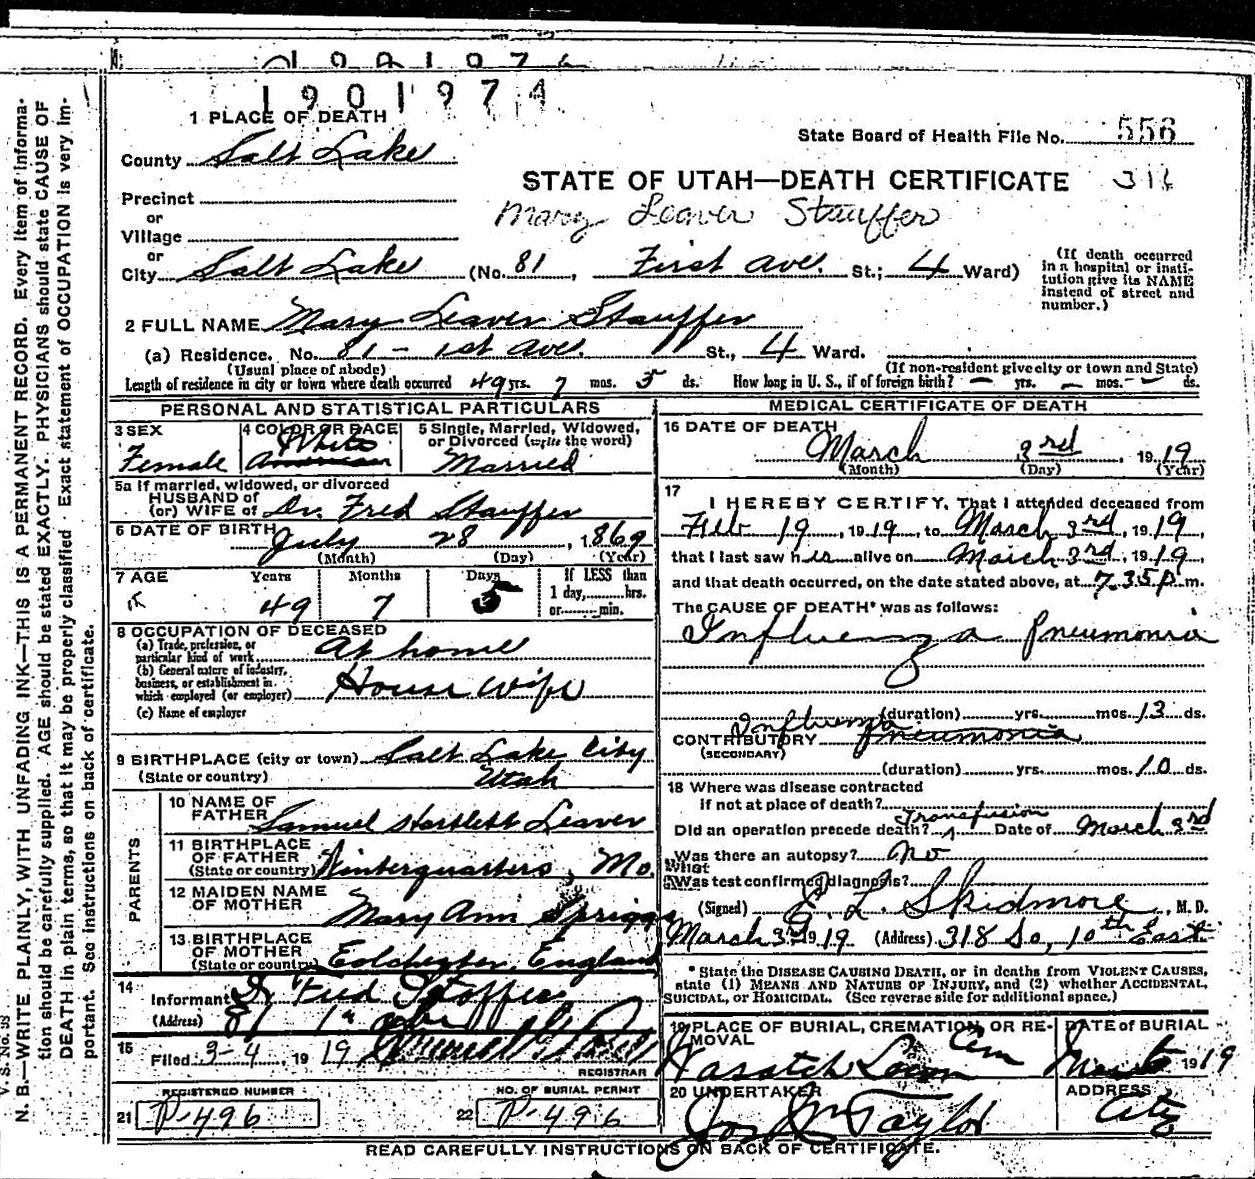 1901974
1 PLACE OF DEATH
State Board of Health File No. 556
County Salt Lake
STATE OF UTAH—DEATH CERTIFICATE 316
Precinct
Mary Leaver Stauffer
or
Village
or
City Salt Lake (No. 81, First Ave. St.; 4 Ward)
(If death occurred in a hospital or institution give its NAME instead of street and number.)
2 FULL NAME Mary Leaver Stauffer
(a) Residence. No. 81 - 1st Ave. St., 4 Ward.
(Usual place of abode) (If non-resident give city or town and State)
Length of residence in city or town where death occurred 49 yrs. 7 mos. 5 ds. How long in U. S., if of foreign birth? — yrs. — mos. — ds.
PERSONAL AND STATISTICAL PARTICULARS
3 SEX 4 COLOR OR RACE 5 Single, Married, Widowed, or Divorced (write the word)
Female White American Married
5a If married, widowed, or divorced
HUSBAND of
(or) WIFE of Dr. Fred Stauffer
6 DATE OF BIRTH July 28, 1869
(Month) (Day) (Year)
7 AGE Years Months Days If LESS than
1 day, hrs.
49 7 5 or min.
8 OCCUPATION OF DECEASED
(a) Trade, profession, or
particular kind of work At home
(b) General nature of industry,
business, or establishment in
which employed (or employer) House wife
(c) Name of employer
9 BIRTHPLACE (city or town) Salt Lake City
(State or country) Utah
PARENTS
10 NAME OF
FATHER Samuel Hartlett Leaver
11 BIRTHPLACE
OF FATHER
(State or country) Winterquarters, Mo.
12 MAIDEN NAME
OF MOTHER Mary Ann Spriggs
13 BIRTHPLACE
OF MOTHER
(State or country) Colchester, England
14
Informant Dr Fred Stoffer
(Address) 81 1st
15 Filed 3-4 1919
REGISTRAR
REGISTERED NUMBER NO. OF BURIAL PERMIT
21 P-496 22 P-496
MEDICAL CERTIFICATE OF DEATH
16 DATE OF DEATH
March 3rd, 1919
(Month) (Day) (Year)
17
I HEREBY CERTIFY, That I attended deceased from
Feb 19, 1919, to March 3rd, 1919,
that I last saw her alive on March 3rd, 1919
and that death occurred, on the date stated above, at 7 35 P m.
The CAUSE OF DEATH* was as follows:
Influenza Pneumonia
(duration) yrs. mos. 13 ds.
Influenza
CONTRIBUTORY Pneumonia
(SECONDARY)
(duration) yrs. mos. 10 ds.
18 Where was disease contracted
if not at place of death?
Transfusion
Did an operation precede death? Date of March 3rd
Was there an autopsy? No
What
Was test confirmed diagnosis?
(Signed) E. L. Skidmore, M. D.
March 3rd 1919 (Address) 318 So, 10th East
*State the DISEASE CAUSING DEATH, or in deaths from VIOLENT CAUSES,
state (1) MEANS AND NATURE OF INJURY, and (2) whether ACCIDENTAL,
SUICIDAL, or HOMICIDAL. (See reverse side for additional space.)
19 PLACE OF BURIAL, CREMATION, OR REMOVAL DATE OF BURIAL
Wasatch Lawn Cem 1919
20 UNDERTAKER ADDRESS
Jos Wm Taylor City
READ CAREFULLY INSTRUCTIONS ON BACK OF CERTIFICATE.
V. S. No. 98
N. B.—WRITE PLAINLY, WITH UNFADING INK—THIS IS A PERMANENT RECORD. Every item of informa-
tion should be carefully supplied. AGE should be stated EXACTLY. PHYSICIANS should state CAUSE OF
DEATH in plain terms, so that it may be properly classified Exact statement of OCCUPATION is very im-
portant. See instructions on back of certificate.